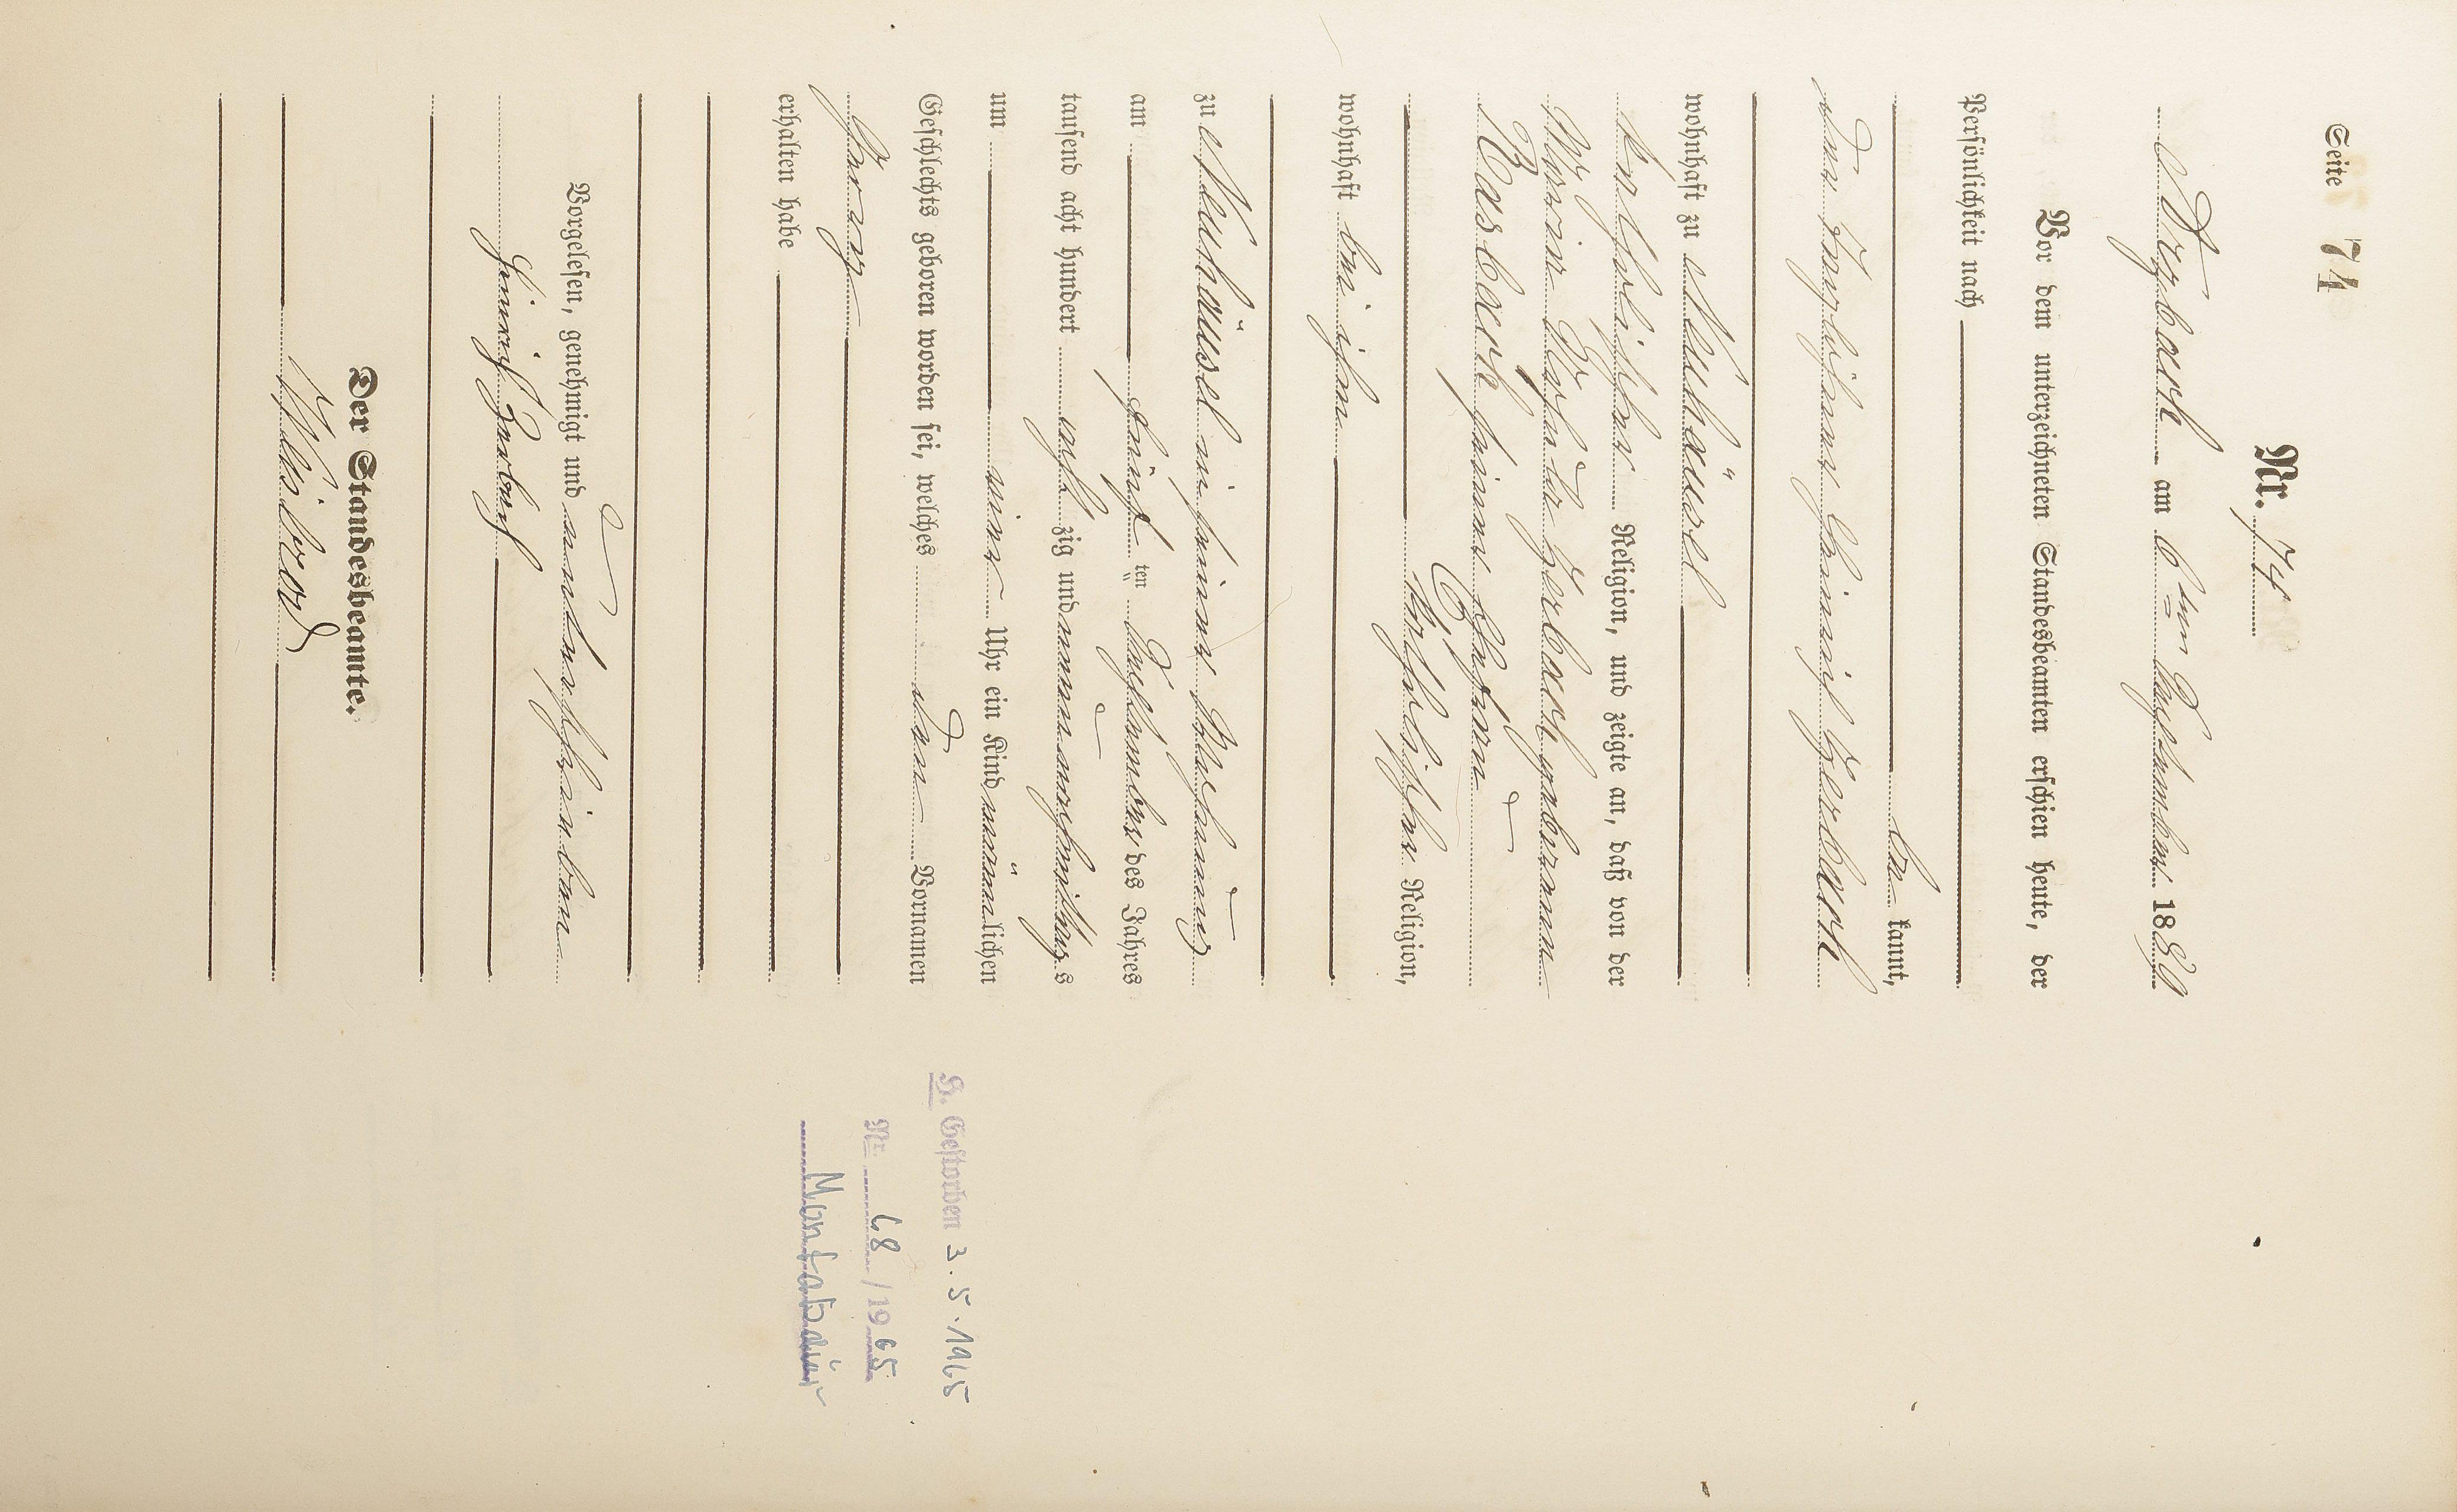 Seite 74
Nr. 74
Arzbach am 6ten September 1889
Vor dem unterzeichneten Standesbeamten erschien heute, der
Persönlichkeit nach
be kannt,
der Taglöhner Heinrich Zerbach
wohnhaft zu Neuhäusel
katholischer Religion, und zeigte an, daß von der
Zerbach geborenen
Basbach seiner Ehefrau
katholischer Religion,
wohnhaft bei ihm
zu Neuhäusel in seiner Wohnung
am fünf ten September des Jahres
tausend acht hundert acht zig und neun nachmittags
um Uhr ein Kind männlichen
Geschlechts geboren worden sei, welches den Vornamen
Georg
erhalten habe
Vorgelesen, genehmigt und unterschrieben
Heinrich Zerbach
Der Standesbeamte.
H. Gestorben 3.5.1965
Nr. 68/1965
Montabaur